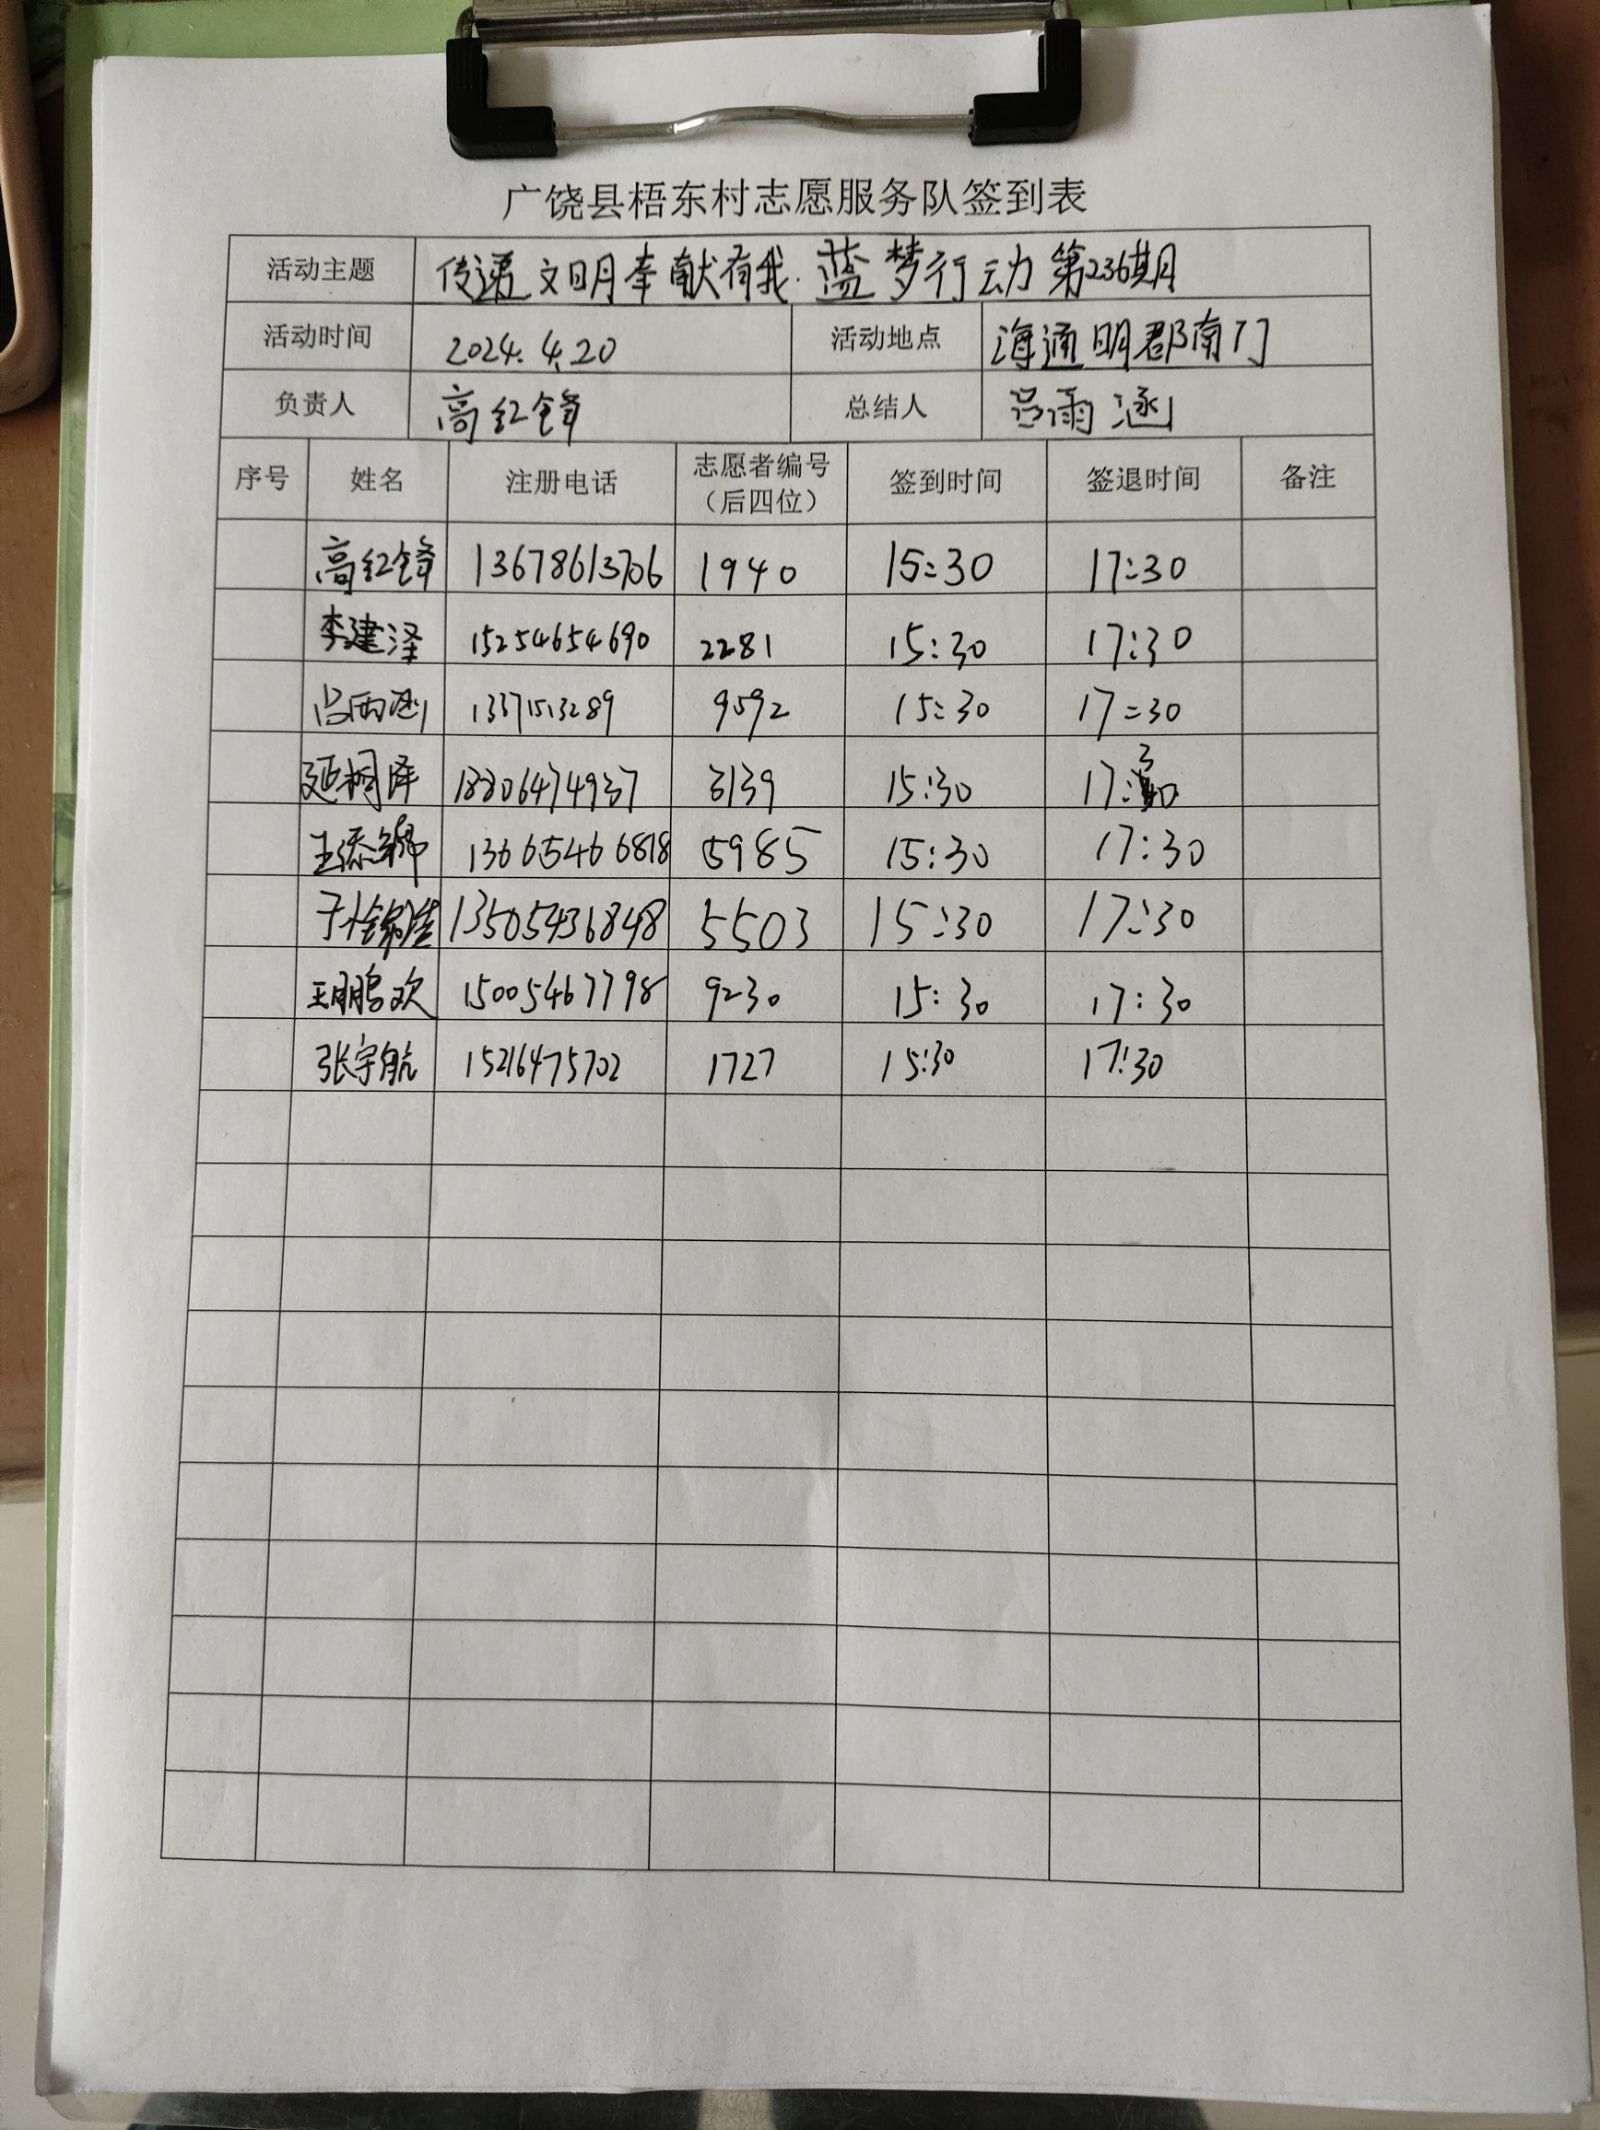 广饶县梧东村志愿服务队签到表
活动主题 传递文明奉献有我.蓝梦行动第236期
活动时间 2024.4.20 活动地点 海通明郡南门
负责人 高红锋 总结人 吕雨涵
序号 姓名 注册电话 志愿者编号（后四位） 签到时间 签退时间 备注
高红锋 13678613706 1940 15:30 17:30
李建泽 15254654690 2281 15:30 17:30
吕雨涵 13371513289 9592 15:30 17:30
延桐泽 18806474937 3139 15:30 17:30
王添 13665466818 5985 15:30 17:30
于 13505436848 5503 15:30 17:30
王鹏欢 15005467798 9230 15:30 17:30
张宇航 15216475702 1727 15:30 17:30